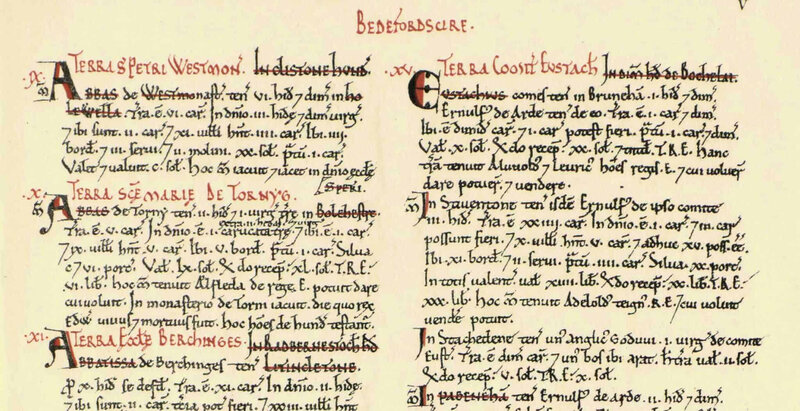 BEDEFORDSCIRE.
V
.IX. TERRA S PETRI WESTMON. IN CLISTONE HUND.
ABBAS de Westmonast. ten. VI. hid 7 dim in ho
lewella. Tra. e. VI. car. In dnio. III. hide 7 dim uirg
7 ibi sunt. II. car. 7 XI. uilli hnt. IIII. car. Ibi. III.
bord. 7 III. serui 7 II. molini. XX. sol. ptu. I. car.
Valet 7 ualuit. c. sol. hoc m iacuit 7 iacet in dnio eccle
S PETRI.
.X. TERRA SCE MARIE DE TORNYG.
ABBAS de Torny ten. II. hid 7 I. uirg tre in Bolehestre.
Tra. e. V. car. In dnio. e. I. carucata tre 7 ibi. e. I. car
7 IX. uilli hnt. V. car. Ibi. V. bord. ptu. I. car. Silua
c 7 VI. porc. Val. LX. sol. Xdo recep. XL. sol. T.R.E.
VI. lib. hoc m tenuit Alfleda de rege. E. potuit dare
cui uoluit. In monasterio de Torni iacuit die quo rex
Edw uiuus 7 mortuus fuit. hoc hoes de hund testant.
.XI. TERRA ECCLE BERCHINGES. IN RADBERNESTOCH HD
ABBATISSA de Berchinges ten LITINCLETONE.
P X. hid se defd. Tra. e. XI. car. In dnio. II. hide.
7 I. car. 7 tcia pot fieri. 7 XXIII. uilli hnt
.XV. TERRA COMIT EUSTACH IN DIM HD DE BOCHELAI.
EUSTACHIUS comes ten in Bruneha. I. hid 7 dim.
Ernulf de Arde ten de eo. Tra. e. I. car 7 dim.
Ibi. e dimid car. 7 I. car potest fieri. ptu. I. car 7 dim.
Val. X. sol. Xdo recep. XX. sol. 7 tntd. T.R.E. hanc
tra tenuit Aluuold 7 Leuric hoes regis. E. 7 cui uoluer
dare potuer. 7 uendere.
In Stauentone ten isde Ernulf de ipso comite
III. hid. Tra. e. XXIIII. car. In dnio. e. I. car. 7 III. car
possunt fieri. 7 X. uilli hnt. V. car. 7 adhuc XV. poss. ee.
Ibi. XI. bord. 7 II. serui. ptu. IIII. car. Silua. XX. porc.
In totis ualent ual XVIII. lib. Xdo recep. XX. lib. T.R.E.
XXX. lib. hoc m tenuit Adelold teign. R.E. 7 cui uoluit
uende potuit.
In Stachedene ten un anglic Goduui. I. uirg de comite
Eust. Tra. e dim car. 7 un bos ibi arat. h tra ual. II. sol.
Xdo recep. V. sol. T.R.E. X. sol.
In PADENEHA ten Ernulf de Arde. II. hid 7 dim.